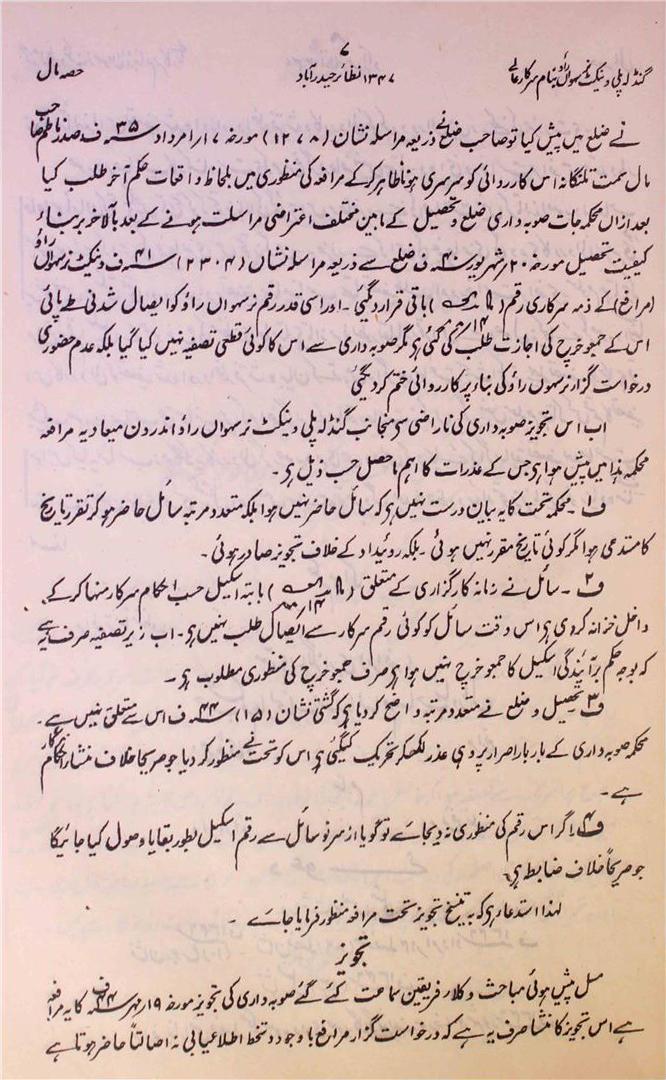 ۷
گنڈلہ پلی وینکٹ نرسہواں راؤ بنام سرکار عالی
۱۳۴۷ نظائر حیدرآباد
حصہ مال
نے ضلع میں پیش کیا تو صاحب ضلع نے ذریعہ مراسلہ نشان (۱۲۷۸) مورخہ ۱۷ امرداد ۳۵ سنہ ف صدر ناظم صاحب
مال سمت تلنگانہ اس کارروائی کو سرسری ہونا ظاہر کر کے مرافعہ کی منظوری میں بلحاظ واقعات حکم آخر طلب کیا
بعد ازاں محکمہ جات صوبہ داری ضلع و تحصیل کے مابین مختلف اعتراضی مراسلت ہونے کے بعد بالآخر بر بناء
کیفیت تحصیل مورخہ ۲۰ شہریور ۴۰ سنہ ف ضلع سے ذریعہ مراسلہ نشان (۲۳۰۴) ۴۱ سنہ ف وینکٹ نرسہواں راؤ
(مرافع) کے ذمہ سرکاری رقم ( ) باقی قرار دیگئی ۔ اور اسی قدر رقم نرسہواں راؤ کو ایصال شدنی طے پائی
اس کے جمع و خرچ کی اجازت طلب کی گئی ہے مگر صوبہ داری سے اس کا کوئی قطعی تصفیہ نہیں کیا گیا بلکہ عدم حضوری
درخواست گزار نرسہوں راؤ کی بناء پر کارروائی ختم کر دیگئی
اب اس تجویز صوبہ داری کی ناراضی سے منجانب گنڈلہ پلی وینکٹ نرسہواں راؤ اندرون میعاد یہ مرافعہ
محکمہ ہذا میں پیش ہوا ہے جس کے عذرات کا اہم ماحصل حسب ذیل ہے ۔
ف۱ ۔ محکمہ تحت کا یہ بیان درست نہیں ہے کہ سائل حاضر نہیں ہوا بلکہ متعدد مرتبہ سائل حاضر ہو کر تقرر تاریخ
کا مستدعی ہوا مگر کوئی تاریخ مقرر نہیں ہوئی ۔ بلکہ روئیداد کے خلاف تجویز صادر ہوئی ۔
ف۲ ۔ سائل نے زمانہ کارگزاری کے متعلق ( ) بابتہ اسکیل حسب احکام سرکار منہا کر کے
داخل خزانہ کر دی ہے اس وقت سائل کو کوئی رقم سرکار سے ایصال طلب نہیں ہے ۔ اب زیر تصفیہ صرف یہ ہے
کہ بوجہ حکم برآئندگی اسکیل کا جمع و خرچ نہیں ہوا ہے صرف جمع و خرچ کی منظوری مطلوب ہے ۔
ف۳ تحصیل و ضلع نے متعدد مرتبہ واضح کر دیا ہے کہ گشتی نشان (۱۵) ۴۴ سنہ ف اس سے متعلق نہیں ہے ۔
محکمہ صوبہ داری کے بار بار اصرار پر وہی عذر لکھکر تحریک کیگئی ہے اس کو تحت نے منظور کر دیا جو صریحاً خلاف منشاء احکام سرکار
ہے ۔
ف۴ ۔ اگر اس رقم کی منظوری نہ دیجائے تو گویا از سر نو سائل سے رقم اسکیل بطور بقایا وصول کیا جائیگا
جو صریحاً خلاف ضابطہ ہے
لہذا استدعا ہے کہ بہ تنسیخ تجویز تحت مرافعہ منظور فرمایا جائے ۔
تجویز
مسل پیش ہوئی مباحث وکلاء فریقین سماعت کئے گئے صوبہ داری کی تجویز مورخہ ۱۹ مہر ۴۴ سنہ ف کا یہ مرافعہ
ہے اس تجویز کا منشا صرف یہ ہے کہ درخواست گزار مرافع باوجود دستخط اطلاعیابی نہ اصالتاً حاضر ہوتا ہے